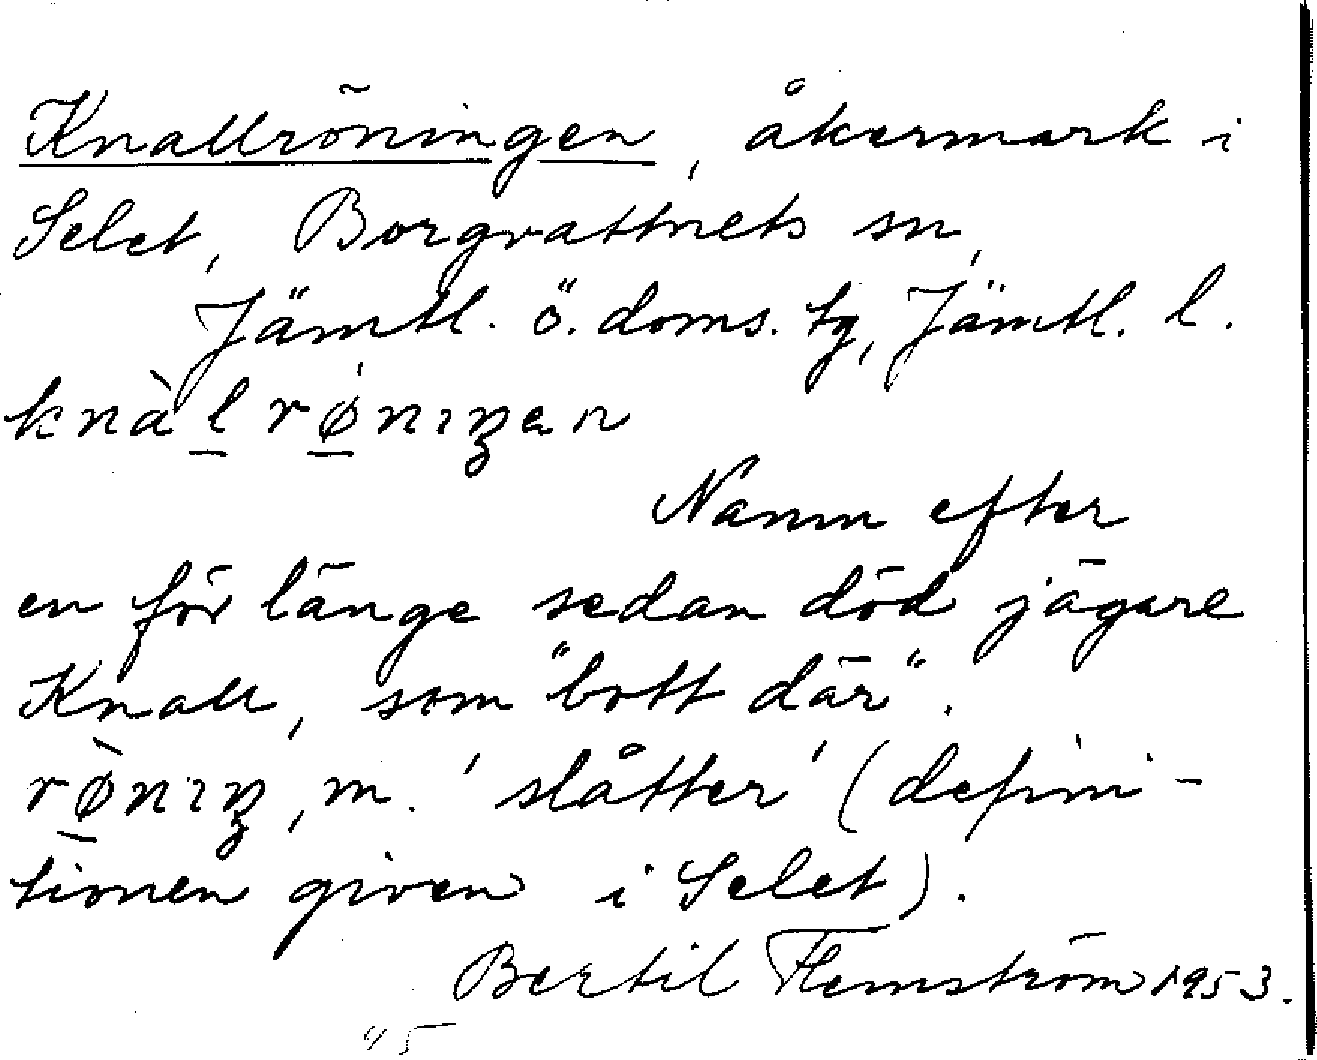 Knallröningen, åkermark i
Selet, Borgvattnets sn,
Jämtl. ö. doms. tg, Jämtl. l.
knàl̲rǿ̲nıŋen
Namn efter
en för länge sedan död jägare
Knall, som "bott där".
rø̲̀nıŋ, m. 'slåtter' (defini-
tionen given i Selet).
Bertil Flemström 1953.